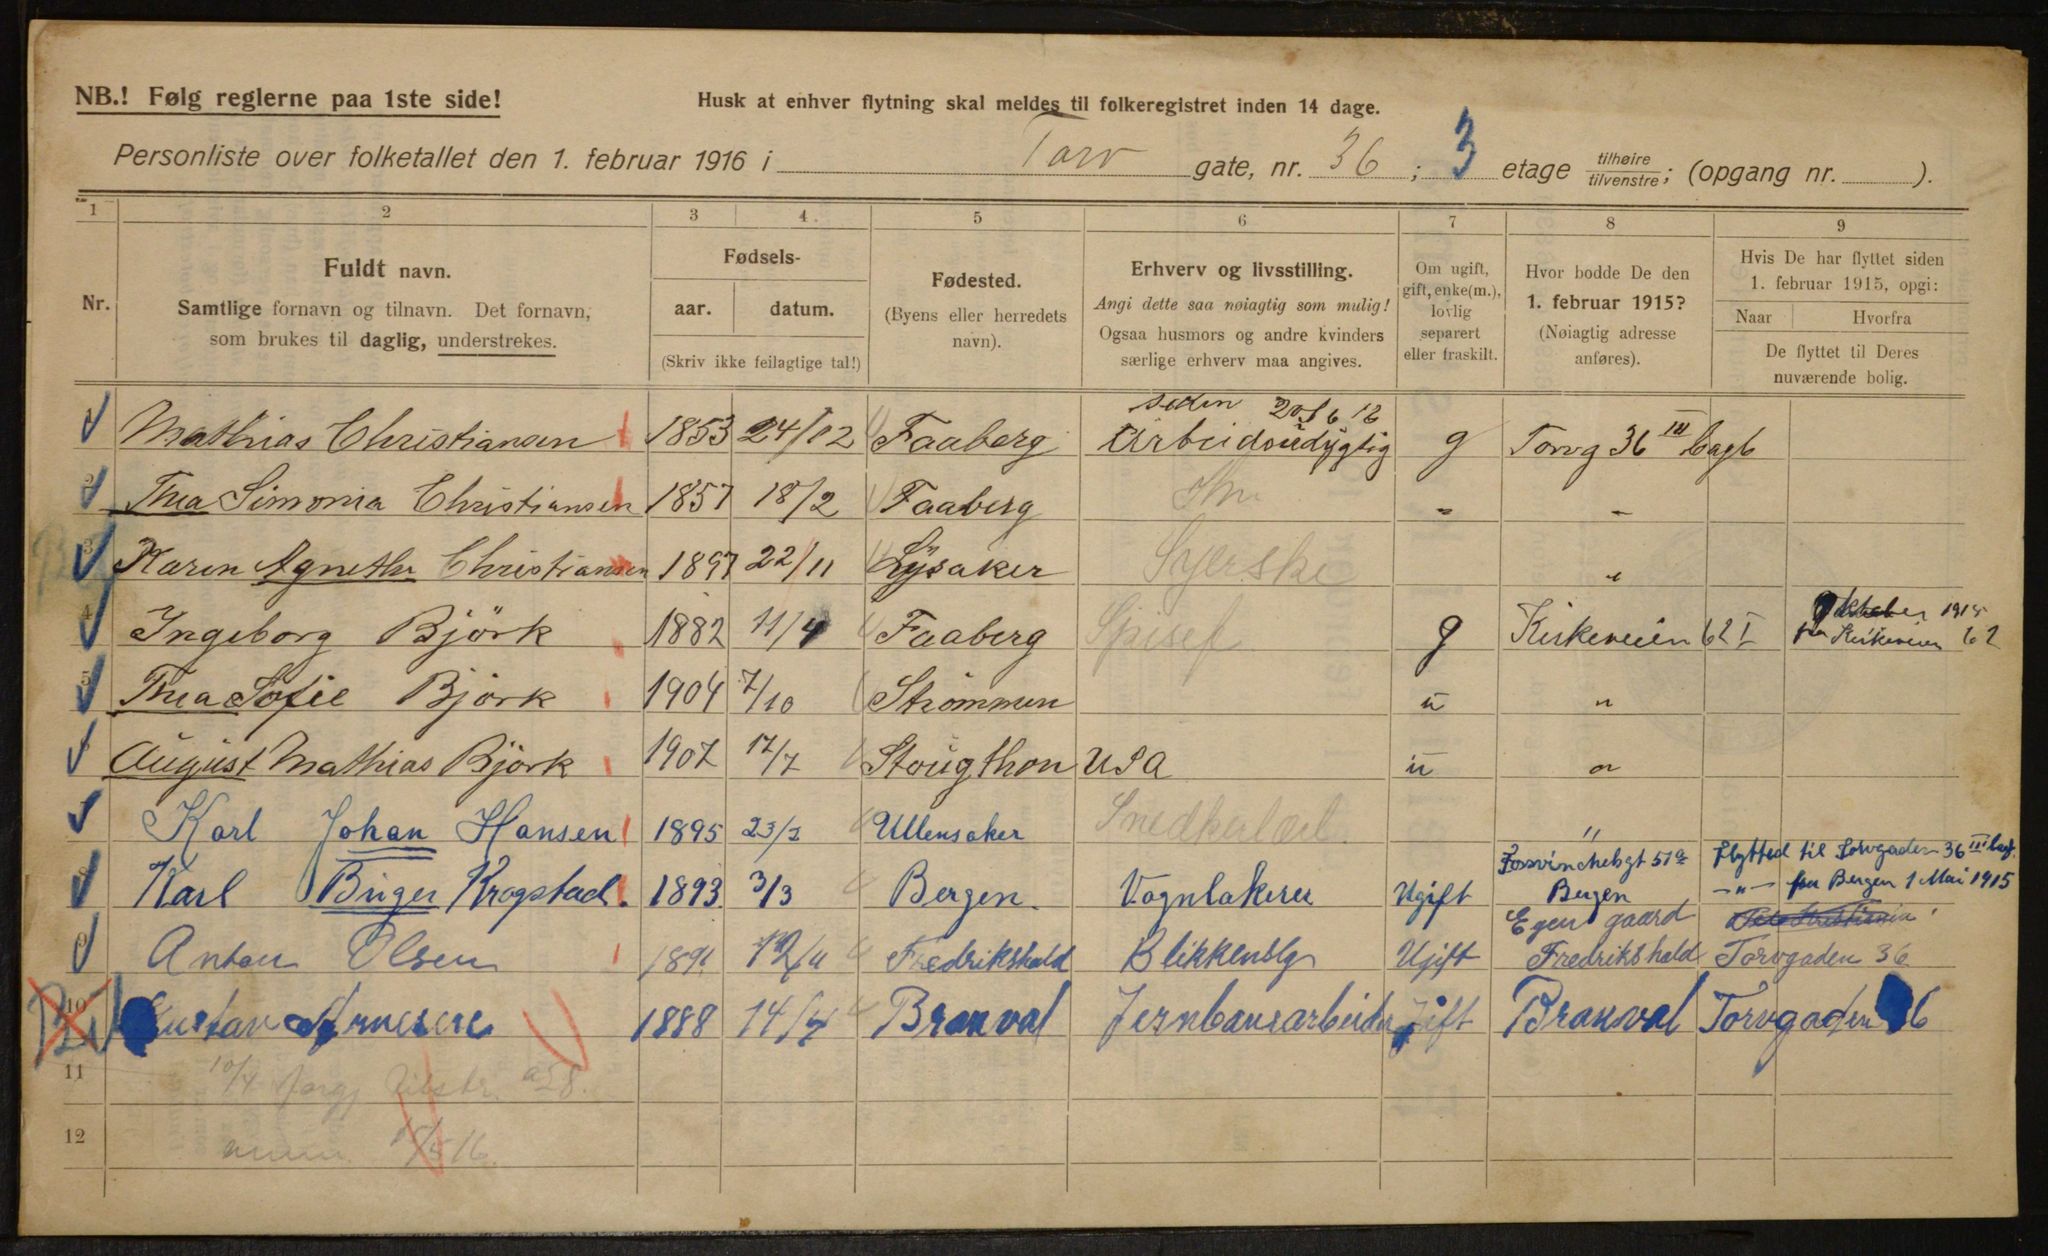 NB.! Følg reglerne paa 1ste side!
Husk at enhver flytning skal meldes til folkeregistret inden 14 dage.
Personliste over folketallet den 1. februar 1916 i Torv gate, nr. 36 ; 3 etage tilhøire/tilvenstre; (opgang nr. ).
1 2 3 4 5 6 7 8 9
Nr.
Fuldt navn.
Samtlige fornavn og tilnavn. Det fornavn,
som brukes til daglig, understrekes.
Fødsels-
aar. datum.
(Skriv ikke feilagtige tal!)
Fødested.
(Byens eller herredets
navn).
Erhverv og livsstilling.
Angi dette saa nøiagtig som mulig!
Ogsaa husmors og andre kvinders
særlige erhverv maa angives.
Om ugift,
gift, enke(m.),
lovlig
separert
eller fraskilt.
Hvor bodde De den
1. februar 1915?
(Nøiagtig adresse
anføres).
Hvis De har flyttet siden
1. februar 1915, opgi:
Naar Hvorfra
De flyttet til Deres
nuværende bolig.
siden
1 Mathias Christiansen 1853 24/12 Faaberg Arbeidsudygtig g Torvg 36 III bagb
2 Thea Simonia Christiansen 1857 18/2 Faaberg Hm " "
3 Karen Agnethe Christiansen 1897 22/11 Lysaker Syerske "
Oktober 1915
4 Ingeborg Björk 1882 11/4 Faaberg Spisef g Kirkeveien 62 I fra Kirkeveien 62
5 Thea Sofie Björk 1904 7/10 Strömmen u "
August Mathias Björk 1907 17/7 Stougthon USA u "
Karl Johan Hansen 1895 23/2 Ullensaker Snedkerlærl "
51a flytted til Torvgaden 36 III bag.
8 Karl Birger Krogstad. 1893 3/3 Bergen. Vognlakerer Ugift Bergen —"— fra Bergen 1 Mai 1915
Egen gaard
9 Anton Olsen 1891 12/4 Fredrikshald Blikkenslg Ugift Fredrikshald Torvgaden 36
10 Gustav Arnesen 1888 14/4 Branval Jernbanearbeider Gift Branval Torvgaden 36
11 10/4
12